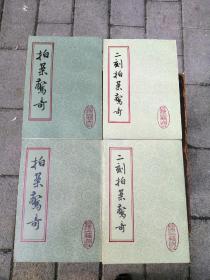 拍案驚奇
二刻拍案驚奇
拍案驚奇
二刻拍案驚奇